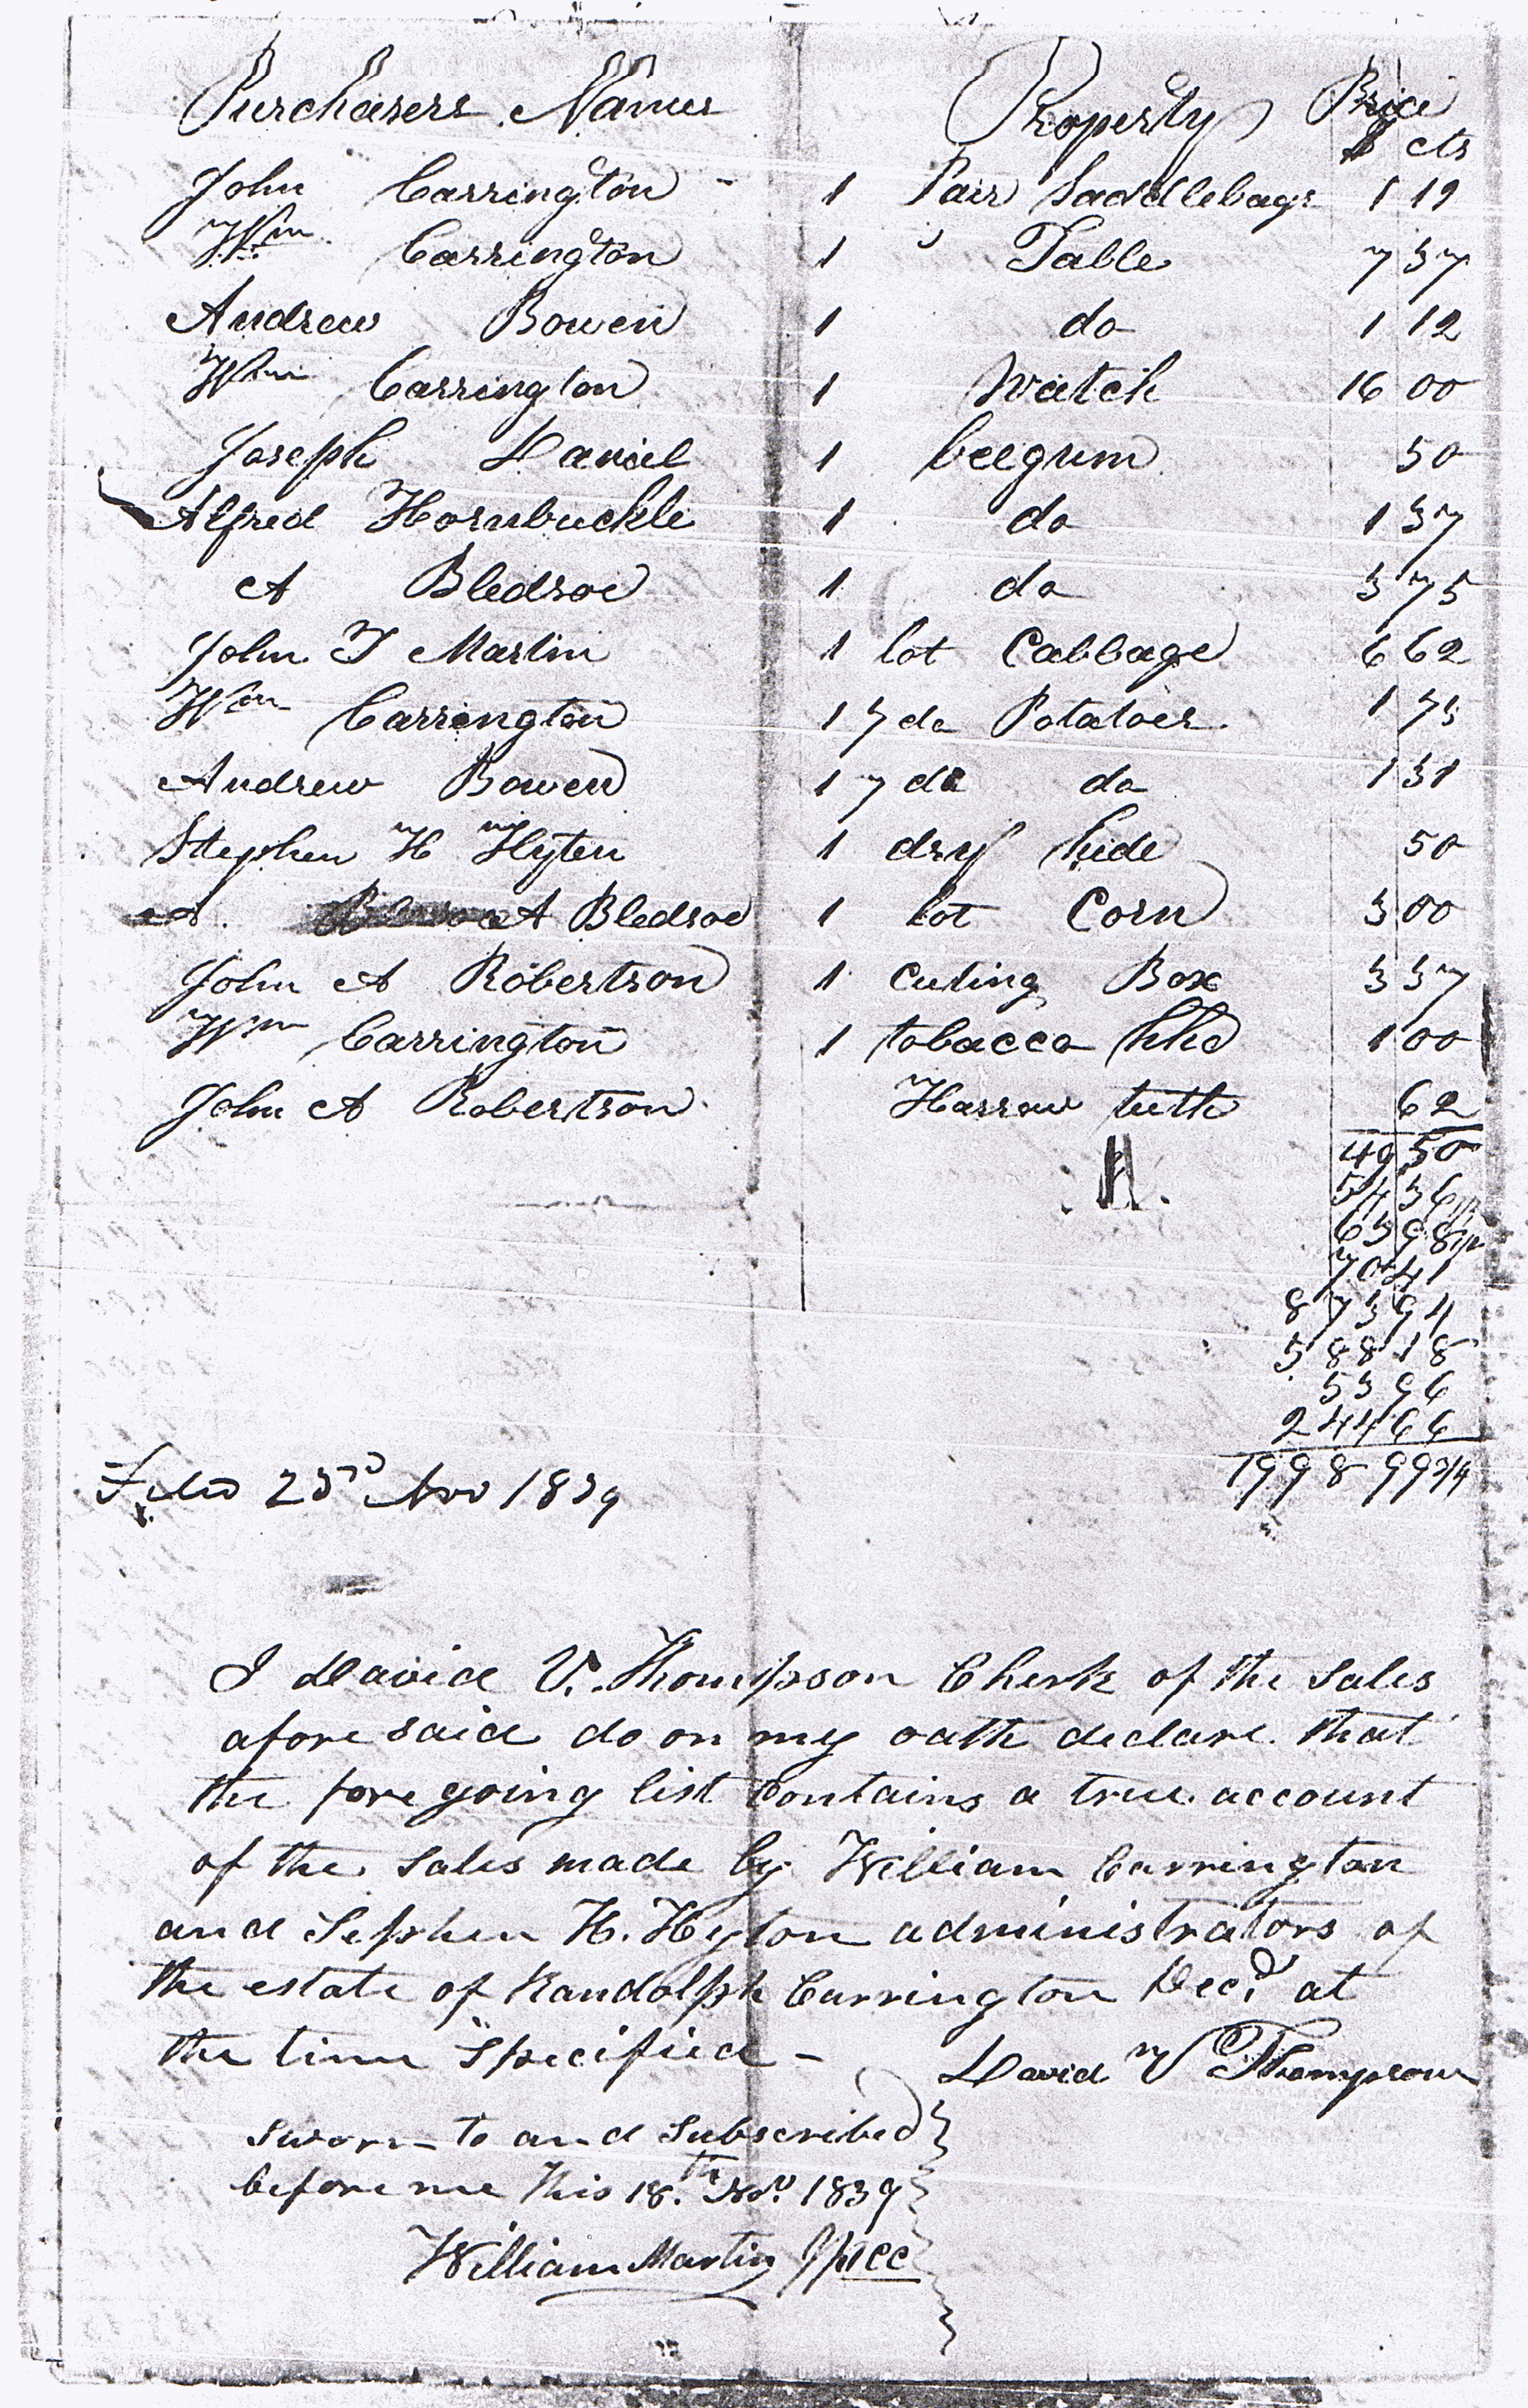 Purchasers Names Property Price
$ cts
John Carrington - 1 Pair Saddlebags 1 19
Wm Carrington 1 Table 7 37
Andrew Bowen 1 do 1 12
Wm Carrington 1 Watch 16 00
Joseph Daniel 1 beegum 50
Alfred Hornbuckle 1 do 1 37
A Bledsoe 1 do 3 75
John T Martin 1 lot Cabbage 6 62
Wm Carrington 1 do Potatoes 1 75
Andrew Bowen 1 do do 1 31
Stephen H Hyten 1 dry hide 50
A Bledsoe 1 lot Corn 3 00
John A Robertson 1 Cuting Box 3 37
Wm Carrington 1 tobacco hhd 1 00
John A Robertson Harrow teeth 62
49 50
54 36 1/2
63 98 1/2
70 41
873 94
588 18
53 96
244 66
1998 99 3/4
Filed 23rd Nov 1839
I David V. Thompson Clerk of the Sales
afore said do on my oath declare that
the fore going list Contains a true account
of the Sales made by William Carrington
and Sephen H. Hyton administrators of
the estate of Randolph Carrington Decd. at
the time Specified -
David V Thompson
Sworn to and Subscribed
before me This 18.th Nov. 1839
William Martin JPCC